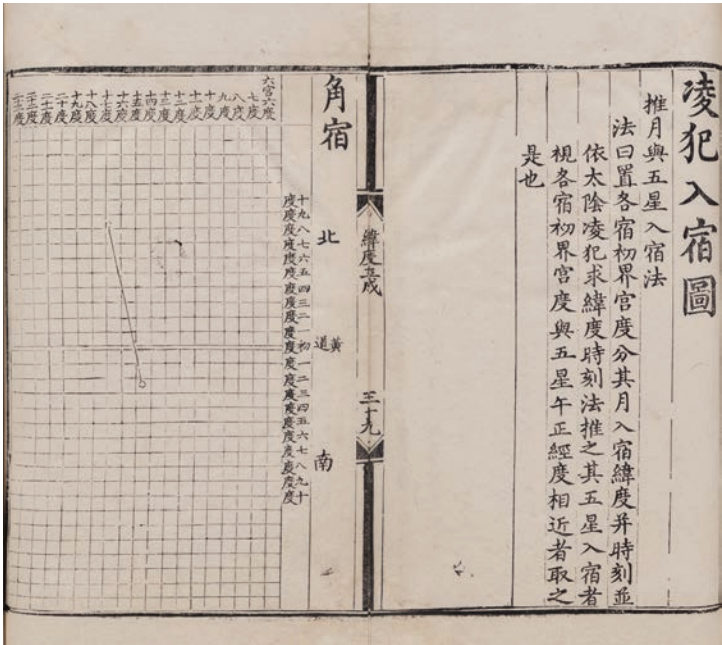 凌犯入宿圖
推月與五星入宿法
法曰置各宿初界宮度分其月入宿緯度并時刻並
依太陰凌犯求緯度時刻法推之其五星入宿者
視各宿初界宮度與五星午正經度相近者取之
是也
緯度立成
三十九
角宿
北
黃道
南
十度
九度
八度
七度
六度
五度
四度
三度
二度
一度
初度
一度
二度
三度
四度
五度
六度
七度
八度
九度
十度
六宮六度
七度
八度
九度
十度
十一度
十二度
十三度
十四度
十五度
十六度
十七度
十八度
十九度
二十度
二十一度
二十二度
二十三度